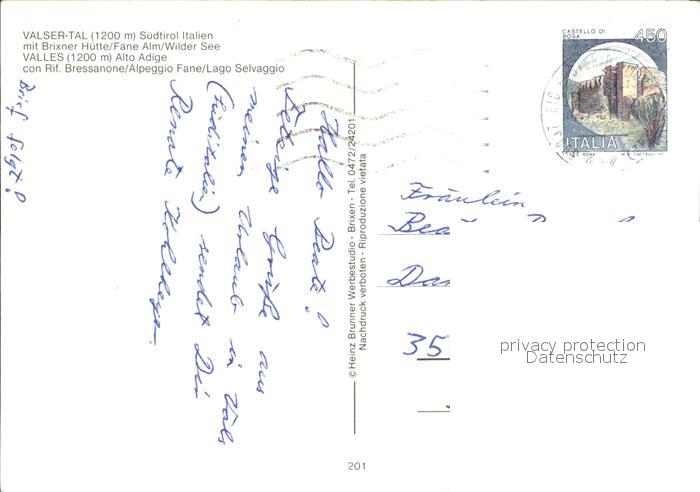 VALSER-TAL (1200 m) Südtirol Italien
mit Brixner Hütte/Fane Alm/Wilder See
VALLES (1200 m) Alto Adige
con Rif. Bressanone/Alpeggio Fane/Lago Selvaggio
Hallo Beate!
Grüße aus
meinem Urlaub in Vals
(Süditalien) sendet Dir
Renate
Brief folgt!
© Heinz Brunner Werbestudio - Brixen - Tel. 0472/24201
Nachdruck verboten - Riproduzione vietata
CASTELLO DI
BOSA
450
ITALIA
Fräulein
Bea
Da
35
privacy protection
Datenschutz
201